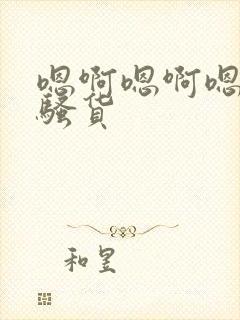 嗯啊嗯啊嗯
骚货
和昱